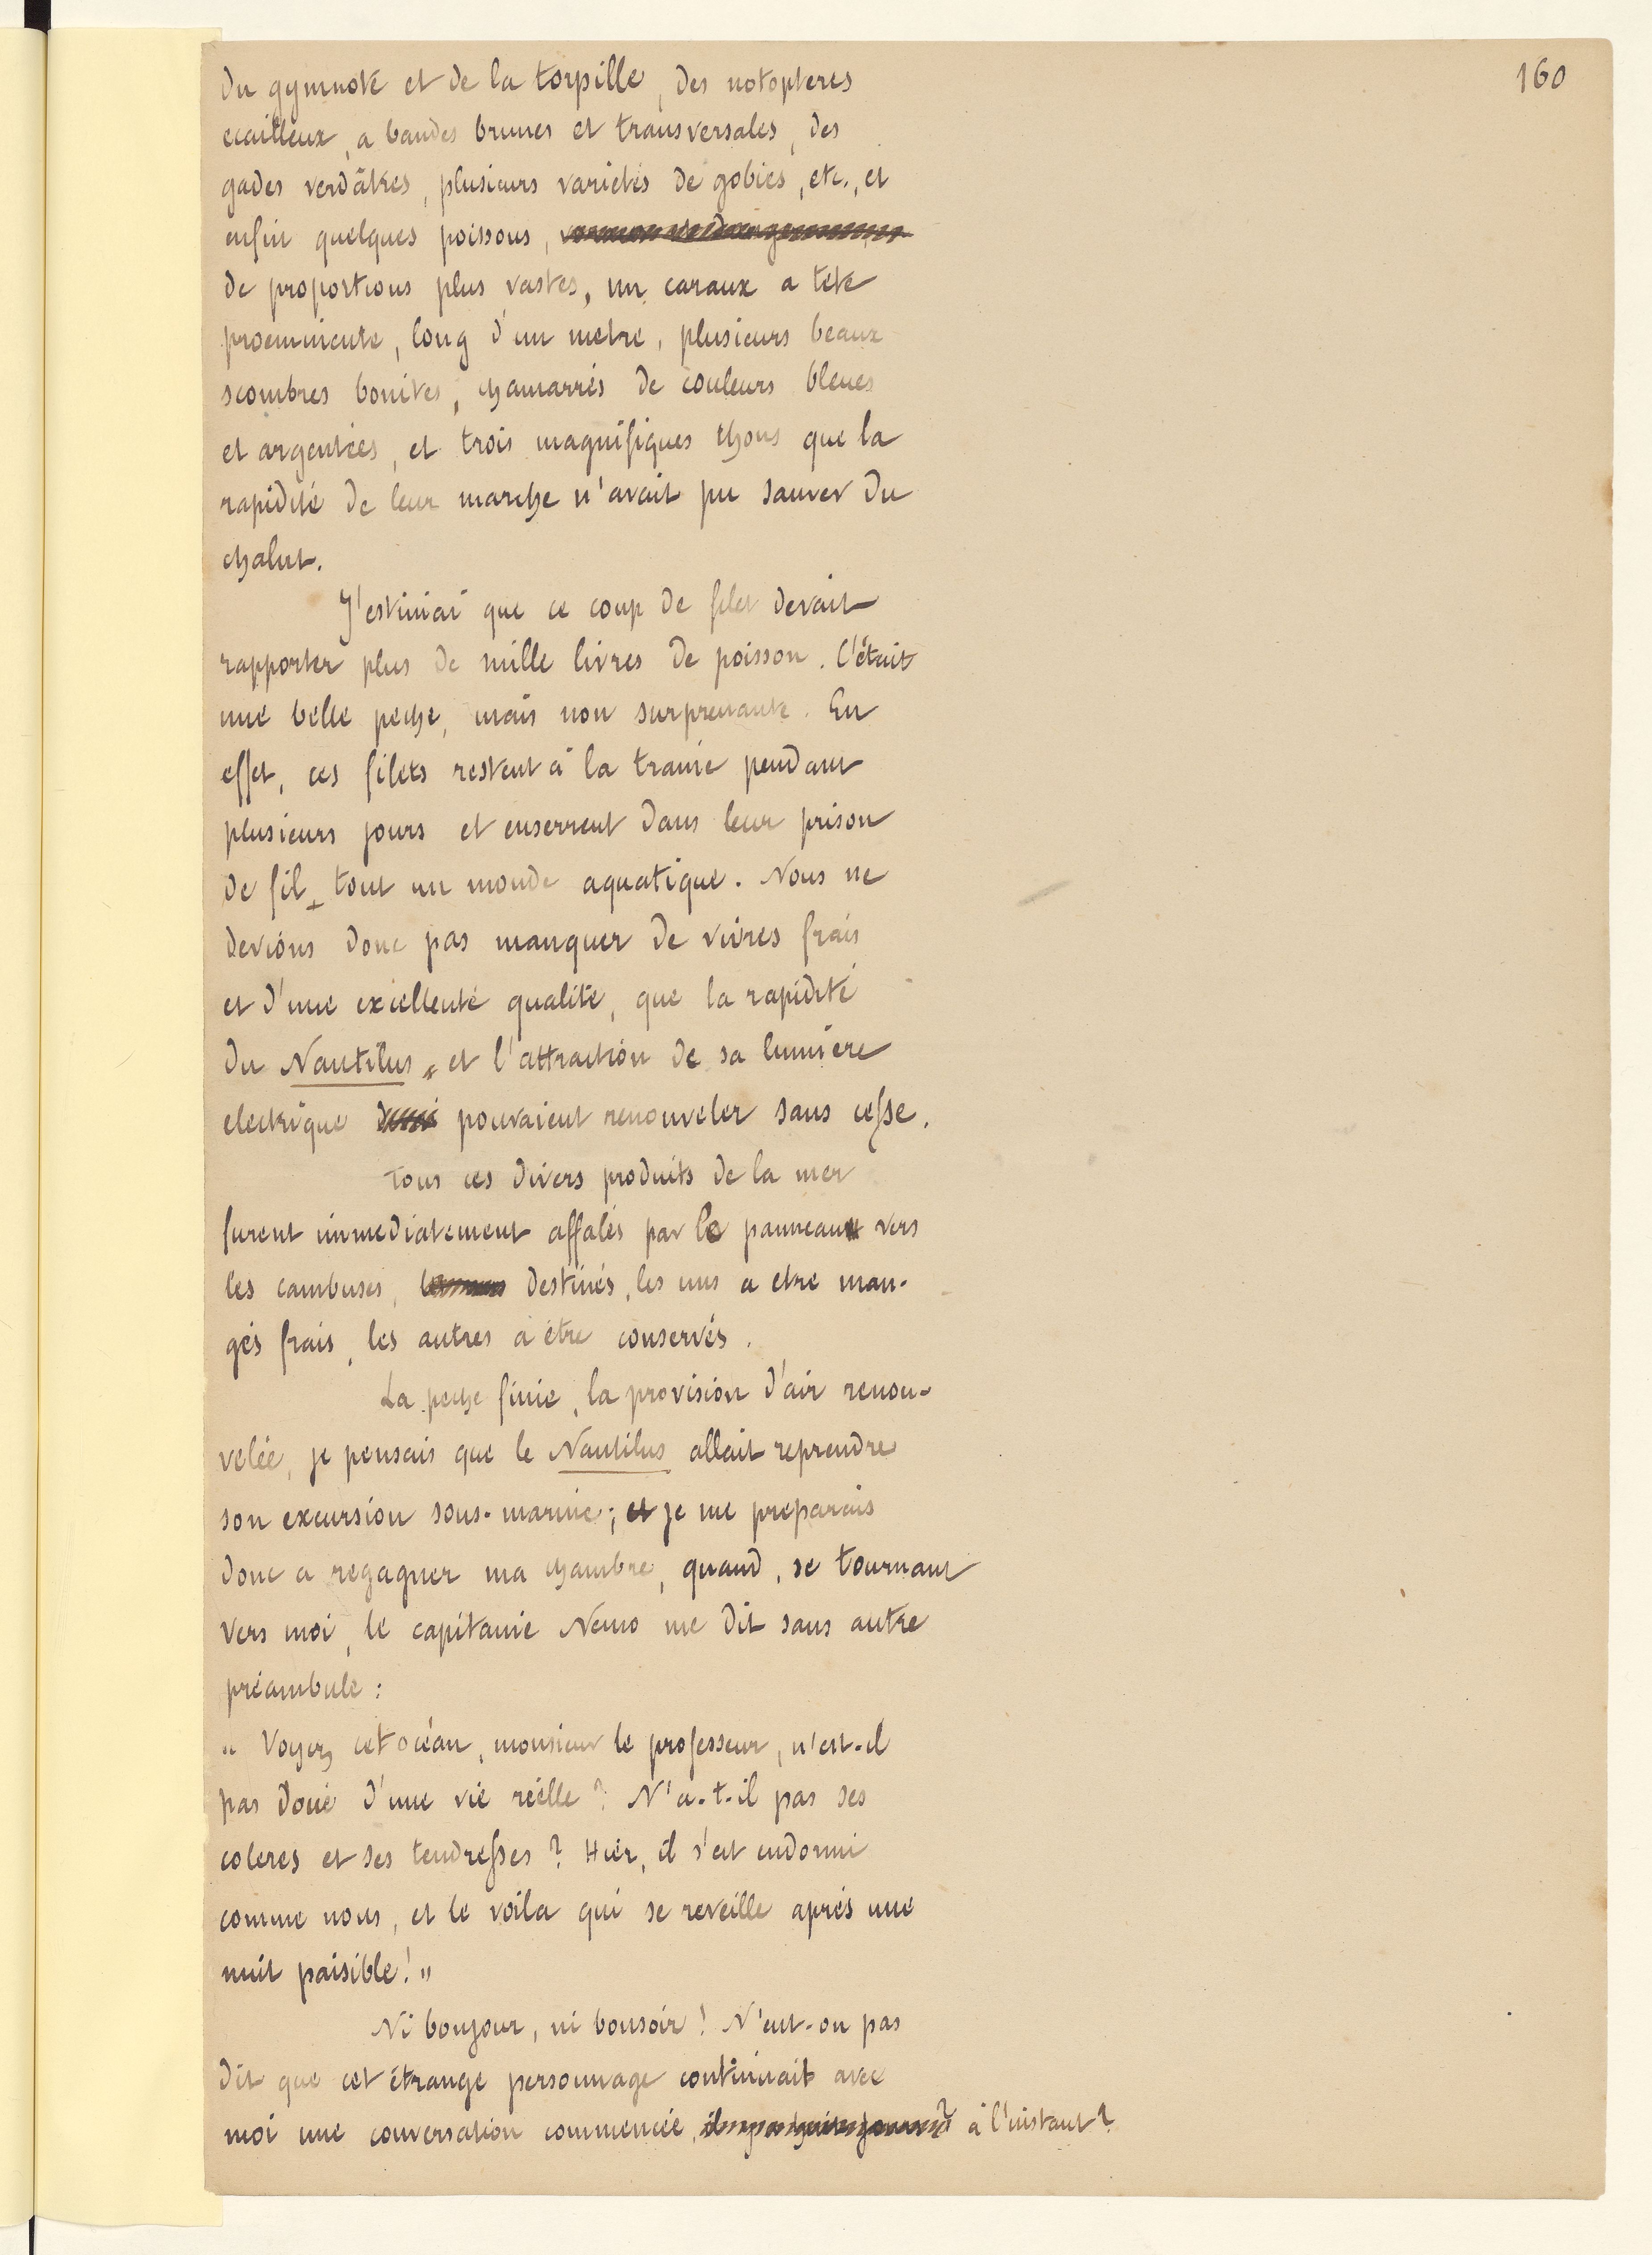 160
du gymnote et de la torpille, des notoptères
écailleux, à bandes brunes et transversales, des
gades verdâtres, plusieurs variétés de gobies, etc., et
enfin quelques poissons,
de proportions plus vastes, un caranx à tête
proéminente, long d'un mètre, plusieurs beaux
scombres bonites, chamarrés de couleurs bleues
et argentées, et trois magnifiques thons que la
rapidité de leur marche n'avait pu sauver du
chalut.
J'estimai que ce coup de filet devait
rapporter plus de mille livres de poisson. C'était
une belle pêche, mais non surprenante. En
effet, ces filets restent à la traîne pendant
plusieurs jours et enserrent dans leur prison
de fil tout un monde aquatique. Nous ne
devions donc pas manquer de vivres frais
et d'une excellente qualité, que la rapidité
du Nautilus et l'attraction de sa lumière
électrique pouvaient renouveler sans cesse.
Tous ces divers produits de la mer
furent immédiatement affalés par le panneau vers
les cambuses, destinés, les uns à être man-
gés frais, les autres à être conservés.
La pêche finie, la provision d'air renou-
velée, je pensais que le Nautilus allait reprendre
son excursion sous-marine; et je me préparais
donc à regagner ma chambre, quand, se tournant
vers moi, le capitaine Nemo me dit sans autre
préambule :
" Voyez cet océan, monsieur le professeur, n'est-il
pas doué d'une vie réelle? N'a-t-il pas ses
colères et ses tendresses? Hier, il s'est endormi
comme nous, et le voilà qui se réveille après une
nuit paisible! "
Ni bonjour, ni bonsoir! N'eut-on pas
dit que cet étrange personnage continuait avec
moi une conversation commencée, à l'instant?